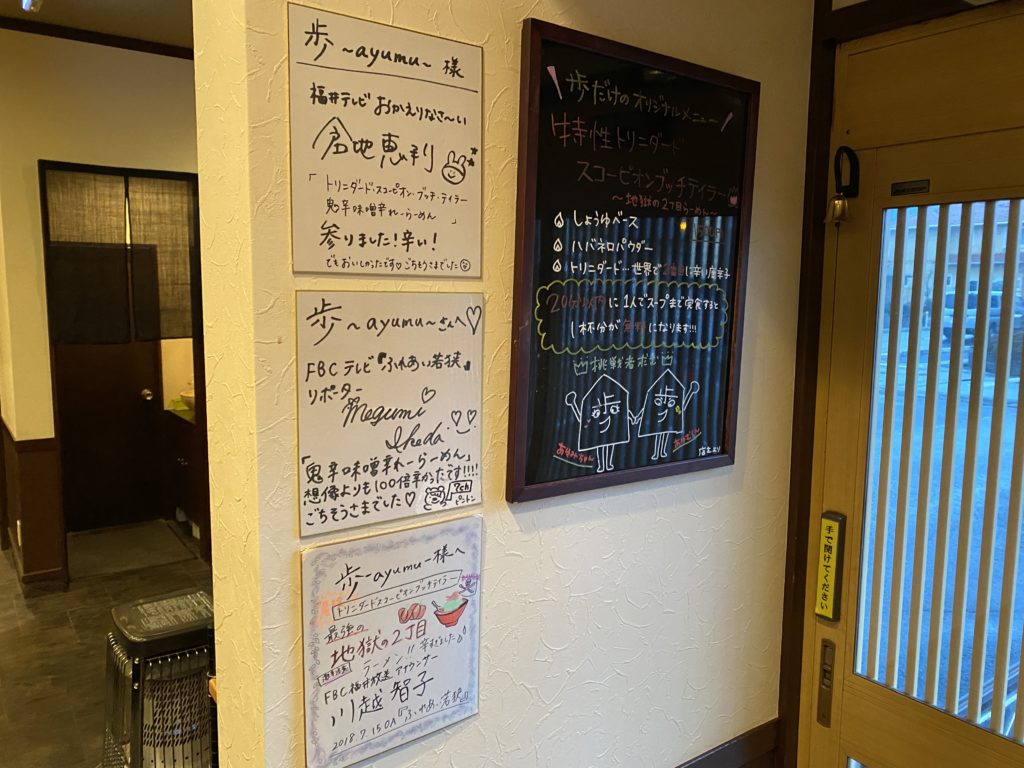 歩 ～ayumu～ 様
福井テレビ おかえりなさ～い
倉地恵利
「トリニダード・スコーピオン・ブッチ・テイラー
鬼辛味噌辛れーらーめん」
参りました！辛い！
でもおいしかったです♡ごちそうさまでした
歩 ～ayumu～さんへ♡
FBCテレビ『ふれあい若狭』
リポーター
Megumi
Ikeda
「鬼辛味噌辛れーらーめん」
想像よりも100倍辛かったです!!!!
ごちそうさまでした♡
7ch
歩-ayumu-様へ
トリニダードスコーピオンブッチテイラー
最強の
地獄の2丁目
ラーメン!! 辛すぎました
FBC福井放送 アナウンサー
川越智子
2018.7.15OA『ふれあい若狭』
歩だけのオリジナルメニュー
特性トリニダード
スコーピオンブッチテイラー
～地獄の2丁目らーめん～
しょうゆベース
ハバネロパウダー
トリニダード…世界で2番目に辛い唐辛子
20分以内に1人でスープまで完食すると
1杯分が無料になります!!!
挑戦者求む
歩
歩
あゆみちゃん
店主より
手で開けてください